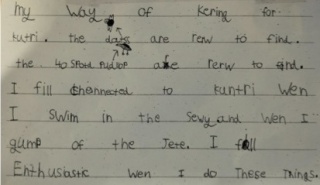 My Way of Kering for
kutri. the dogs are rerw to find.
the 40 SPotd Pudlop are rerw to find.
I fill Chonnected to kuntri Wen
I Swim in the Sewy and Wen I
gump of the Jete. I fill
Enthusiastic Wen I do These Things.